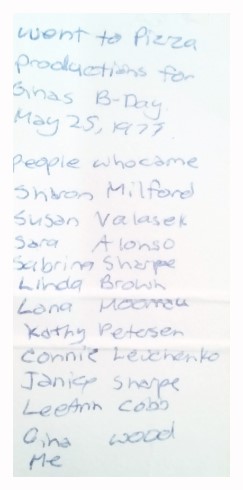 Went to Pizza
productions for
Ginas B-Day
May 25, 1977.
People who came
Sharon Milford
Susan Valasek
Sara Alonso
Sabrina Sharpe
Linda Brown
Lana
Kathy Petersen
Connie Levchenko
Janice Sharpe
LeeAnn Cobb
Gina Wood
Me